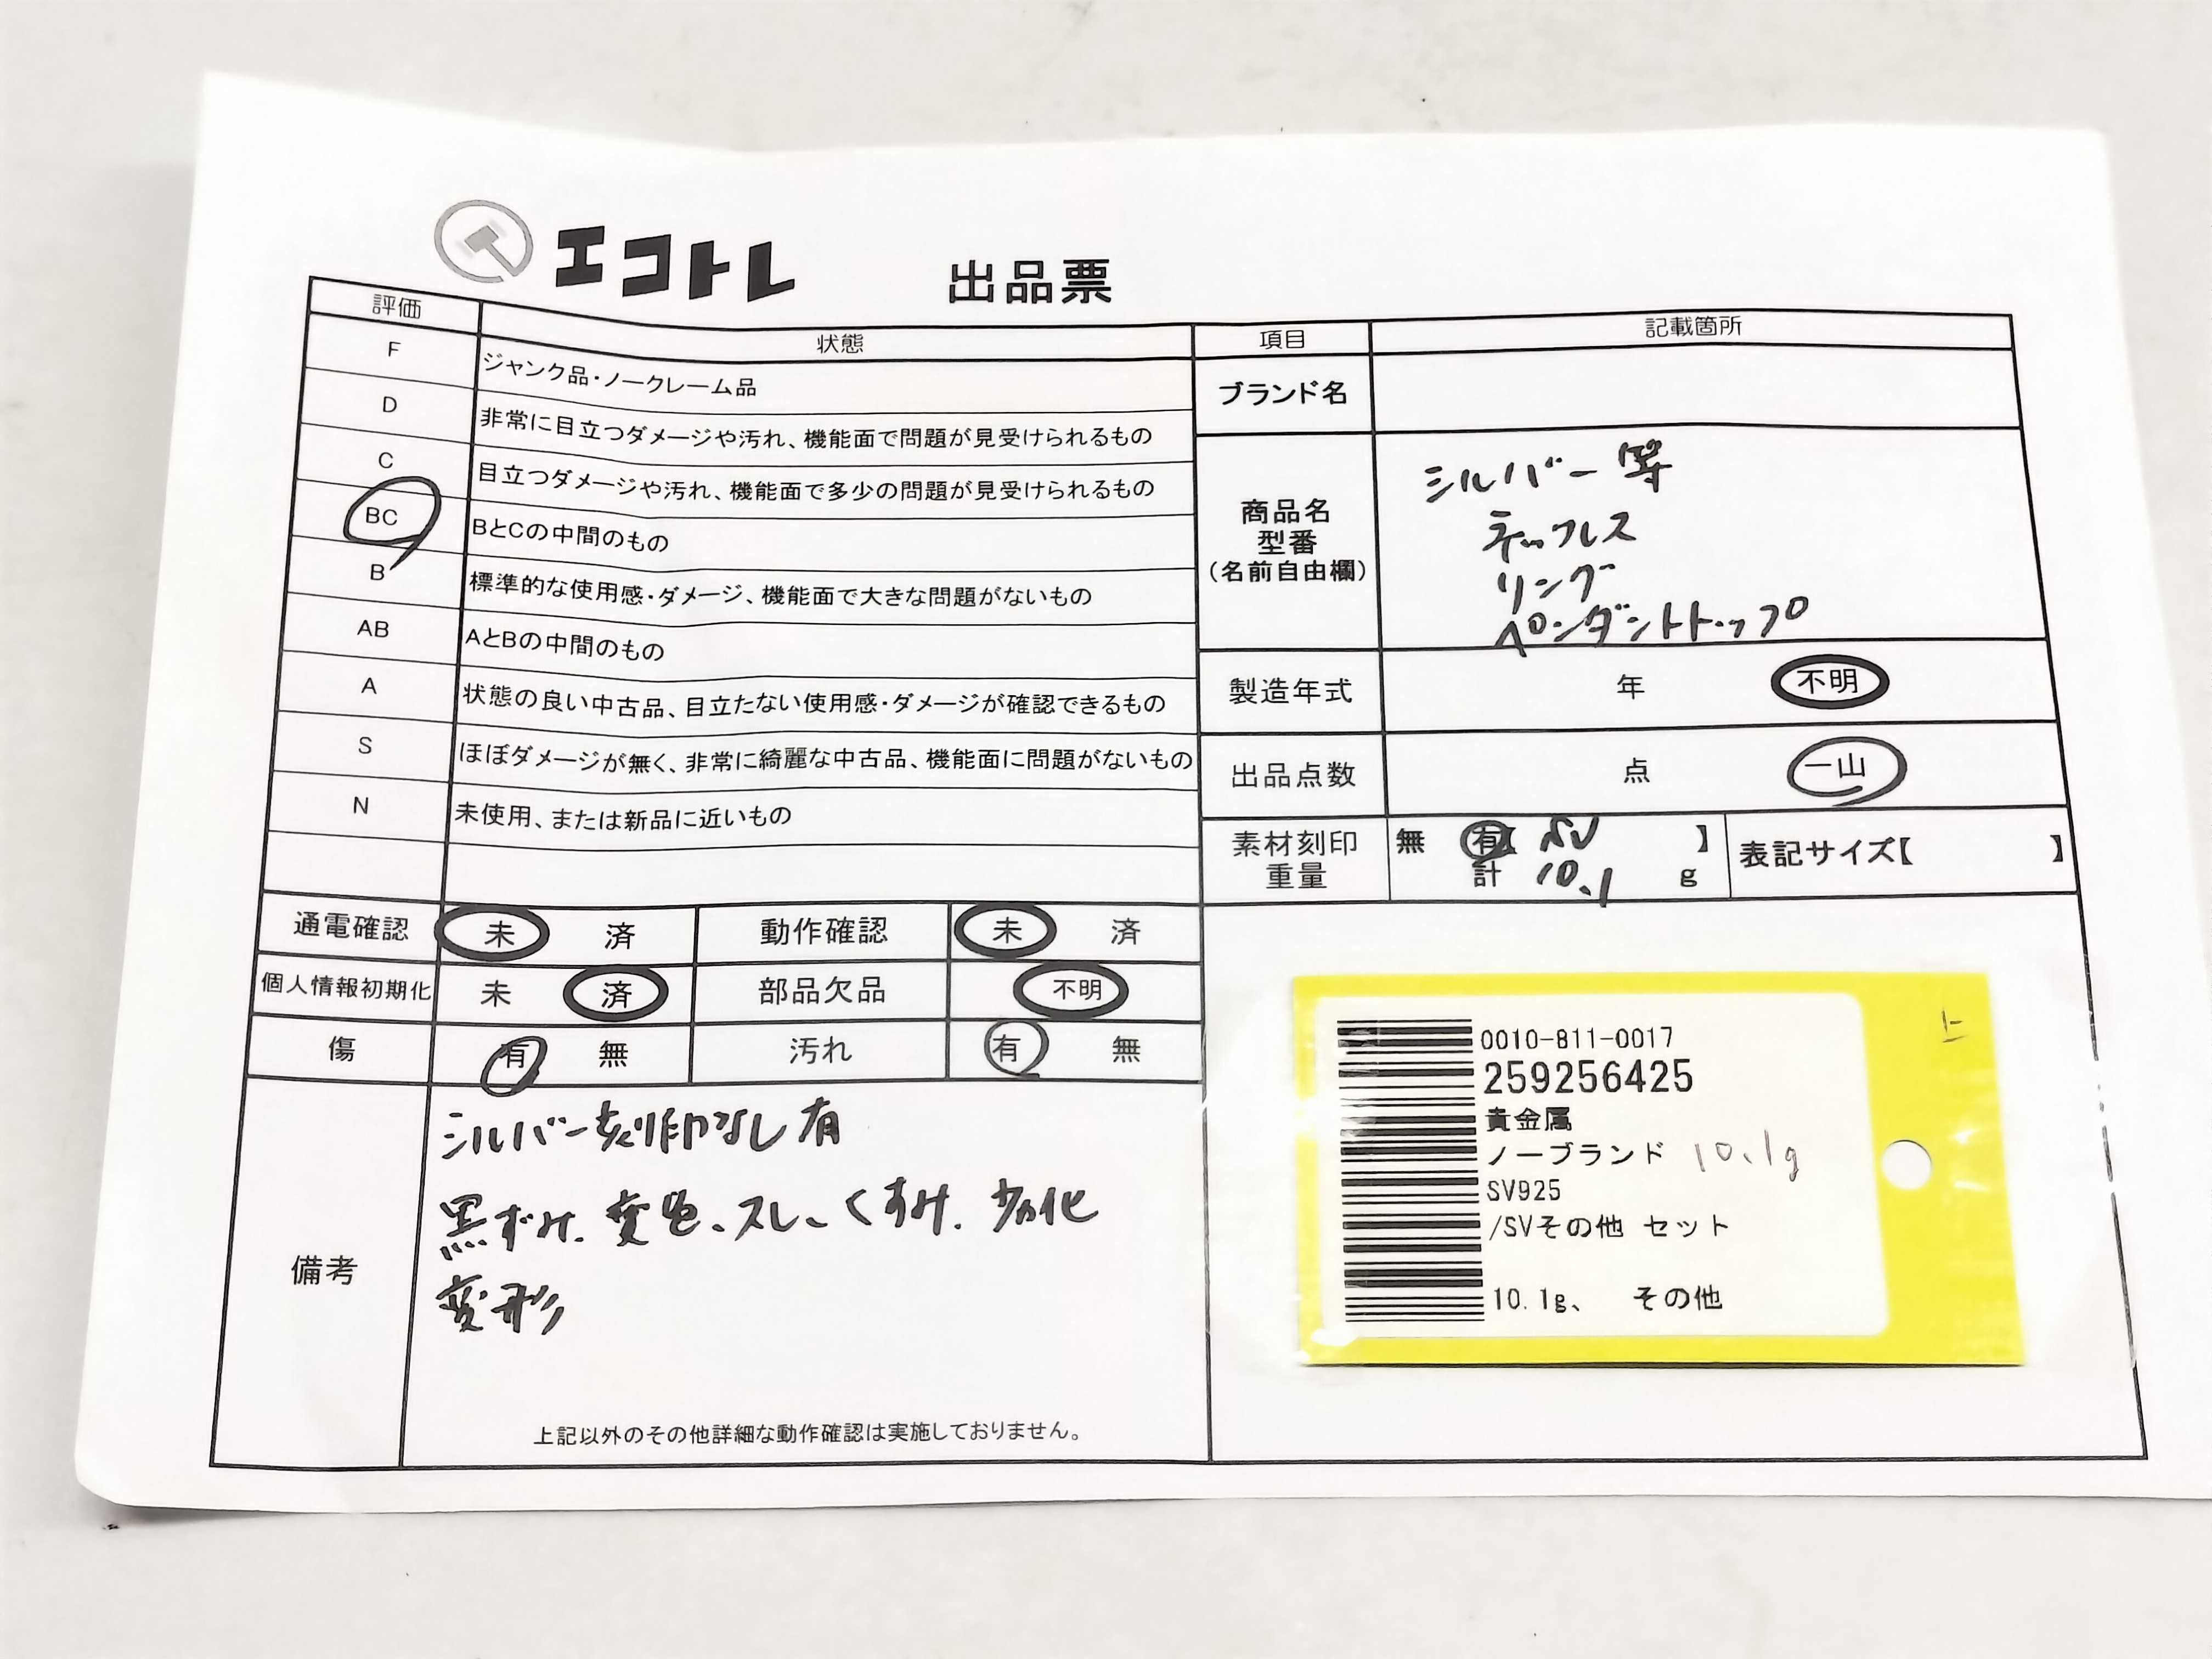 エコトレ 出品票
評価 状態
F ジャンク品・ノークレーム品
D 非常に目立つダメージや汚れ、機能面で問題が見受けられるもの
C 目立つダメージや汚れ、機能面で多少の問題が見受けられるもの
BC BとCの中間のもの
B 標準的な使用感・ダメージ、機能面で大きな問題がないもの
AB AとBの中間のもの
A 状態の良い中古品、目立たない使用感・ダメージが確認できるもの
S ほぼダメージが無く、非常に綺麗な中古品、機能面に問題がないもの
N 未使用、または新品に近いもの
通電確認 未 済 動作確認 未 済
個人情報初期化 未 済 部品欠品 不明
傷 有 無 汚れ 有 無
備考
シルバー刻印なし有
黒ずみ、変色、スレ、くすみ、劣化
変形
上記以外のその他詳細な動作確認は実施しておりません。
項目 記載箇所
ブランド名
商品名
型番
(名前自由欄)
シルバー等
ネックレス
リング
ペンダントトップ
製造年式 年 不明
出品点数 点 一山
素材刻印 無 有【 SV 】
重量 計 10.1 g
表記サイズ【 】
0010-811-0017
259256425
貴金属
ノーブランド 10.1g
SV925
/SVその他 セット
10.1g、 その他